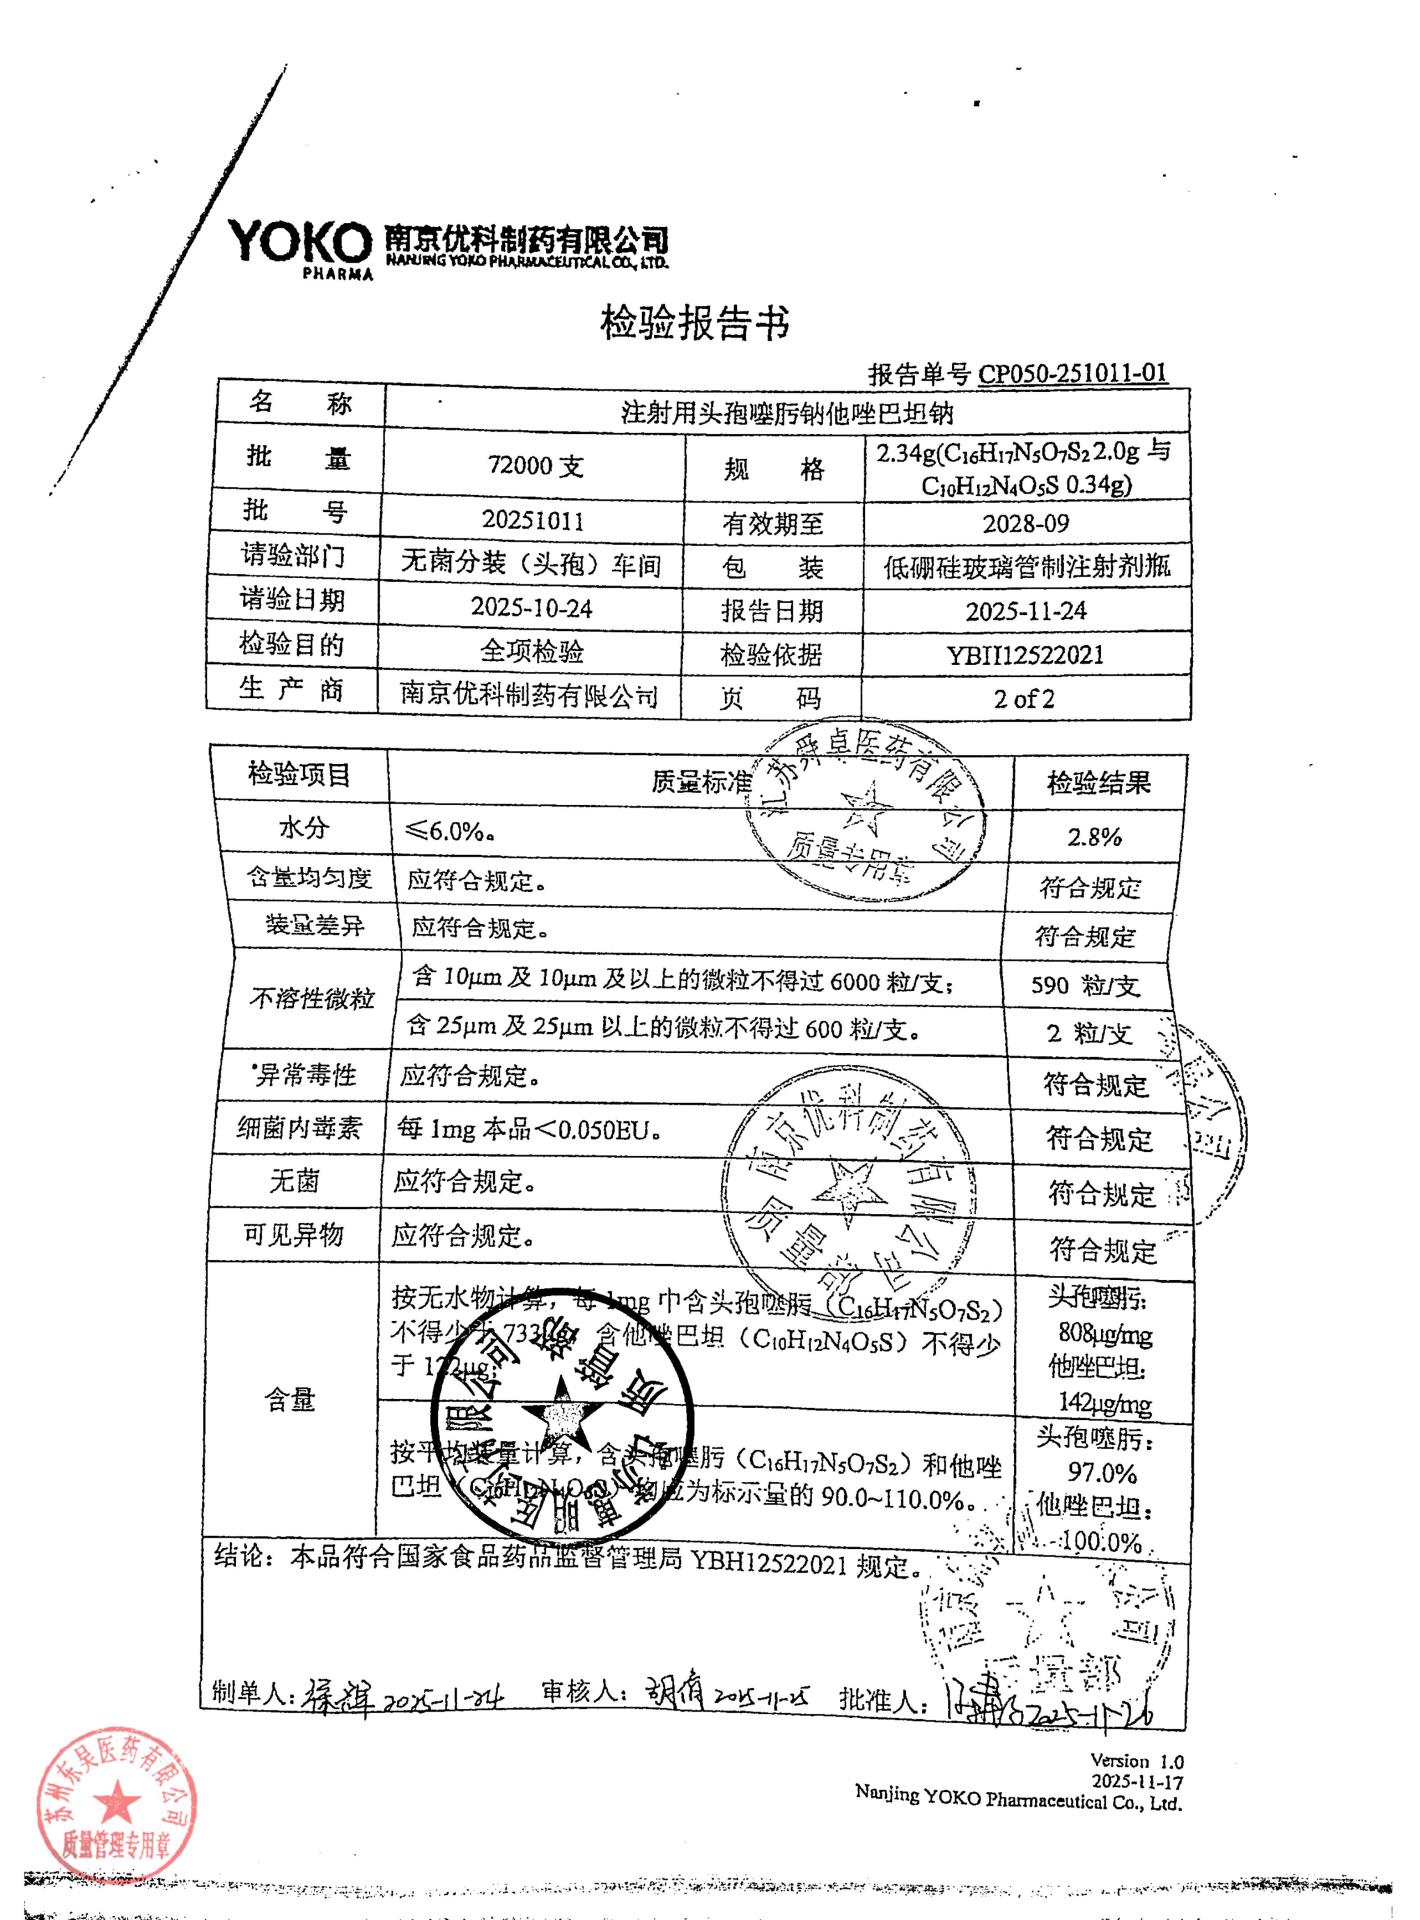 YOKO 南京优科制药有限公司
PHARMA NANJING YOKO PHARMACEUTICAL CO., LTD.
检验报告书
报告单号 CP050-251011-01
名 称 注射用头孢噻肟钠他唑巴坦钠
批 量 72000 支 规 格 2.34g(C16H17N5O7S2 2.0g 与
C10H12N4O5S 0.34g)
批 号 20251011 有效期至 2028-09
请验部门 无菌分装（头孢）车间 包 装 低硼硅玻璃管制注射剂瓶
请验日期 2025-10-24 报告日期 2025-11-24
检验目的 全项检验 检验依据 YBH12522021
生 产 商 南京优科制药有限公司 页 码 2 of 2
检验项目 质量标准 检验结果
水分 ≤6.0%。 2.8%
含量均匀度 应符合规定。 符合规定
装量差异 应符合规定。 符合规定
不溶性微粒 含 10μm 及 10μm 及以上的微粒不得过 6000 粒/支； 590 粒/支
含 25μm 及 25μm 以上的微粒不得过 600 粒/支。 2 粒/支
*异常毒性 应符合规定。 符合规定
细菌内毒素 每 1mg 本品＜0.050EU。 符合规定
无菌 应符合规定。 符合规定
可见异物 应符合规定。 符合规定
含量 按无水物计算，每 1mg 中含头孢噻肟（C16H17N5O7S2）
不得少于 733 含他唑巴坦（C10H12N4O5S）不得少
于 122μg；
头孢噻肟：
808μg/mg
他唑巴坦：
142μg/mg
按平均装量计算，含头孢噻肟（C16H17N5O7S2）和他唑
巴坦（C10H12N4O5S）均应为标示量的 90.0~110.0%。
头孢噻肟：
97.0%
他唑巴坦：
100.0%
结论：本品符合国家食品药品监督管理局 YBH12522021 规定。
制单人： 2025-11-24 审核人： 2025-11-25 批准人： 2025-11-26
Version 1.0
2025-11-17
Nanjing YOKO Pharmaceutical Co., Ltd.
江苏舜卓医药有限公司
质量专用章
南京优科制药有限公司
质量部
苏州东吴医药有限公司
质量管理专用章